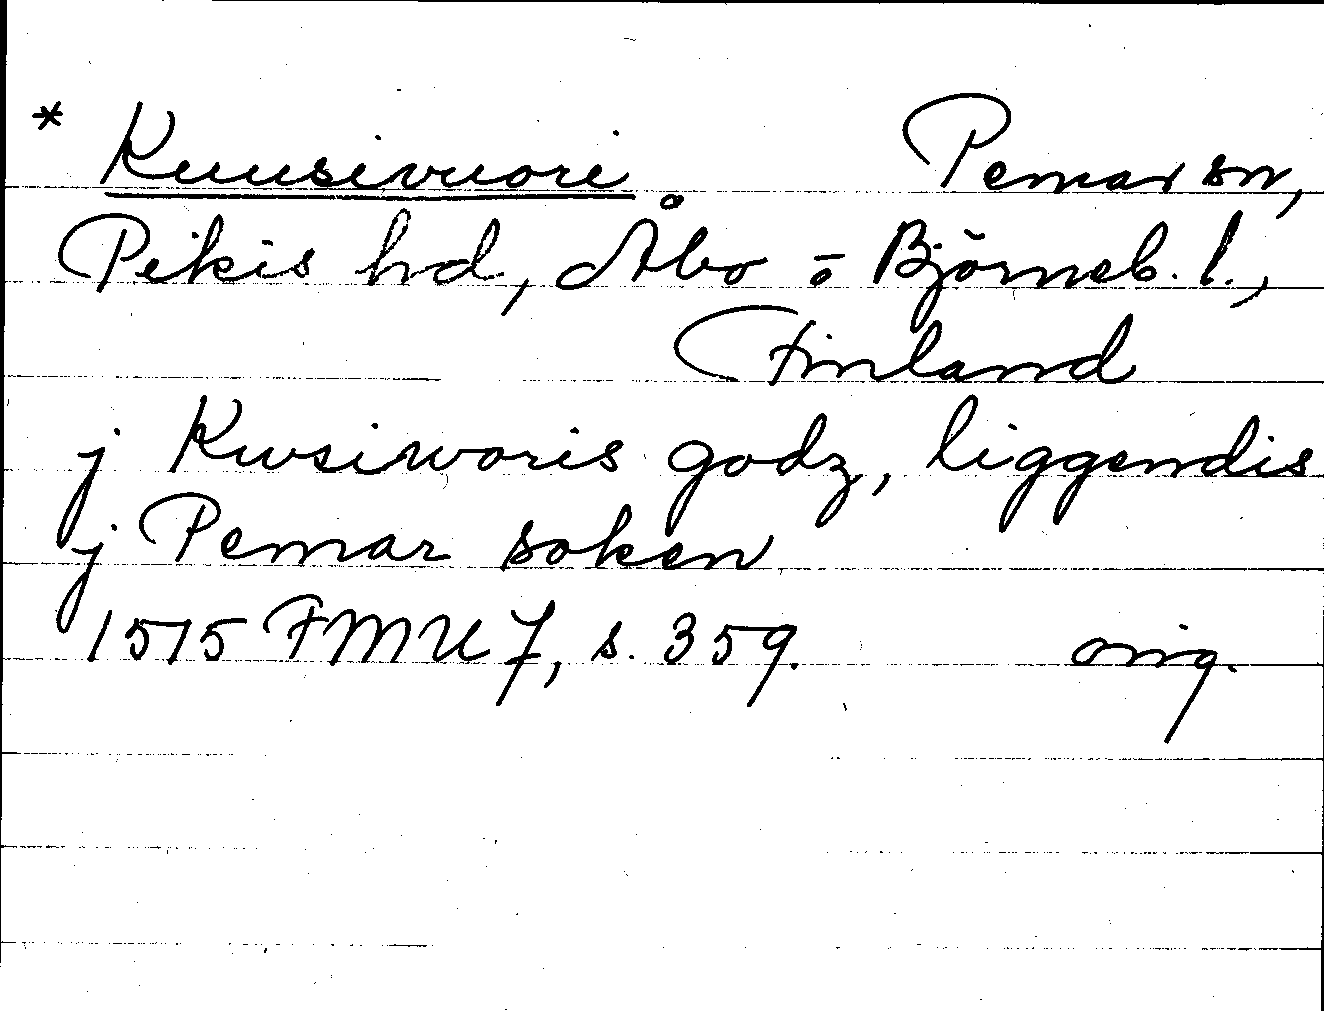 * Kuusivuori Pemar sn,
Pikis hd, Åbo o Björneb. l.,
Finland
j Kwsiworis godz, liggendis
j Pemar soken
1515 FMU 7, s. 359. orig.